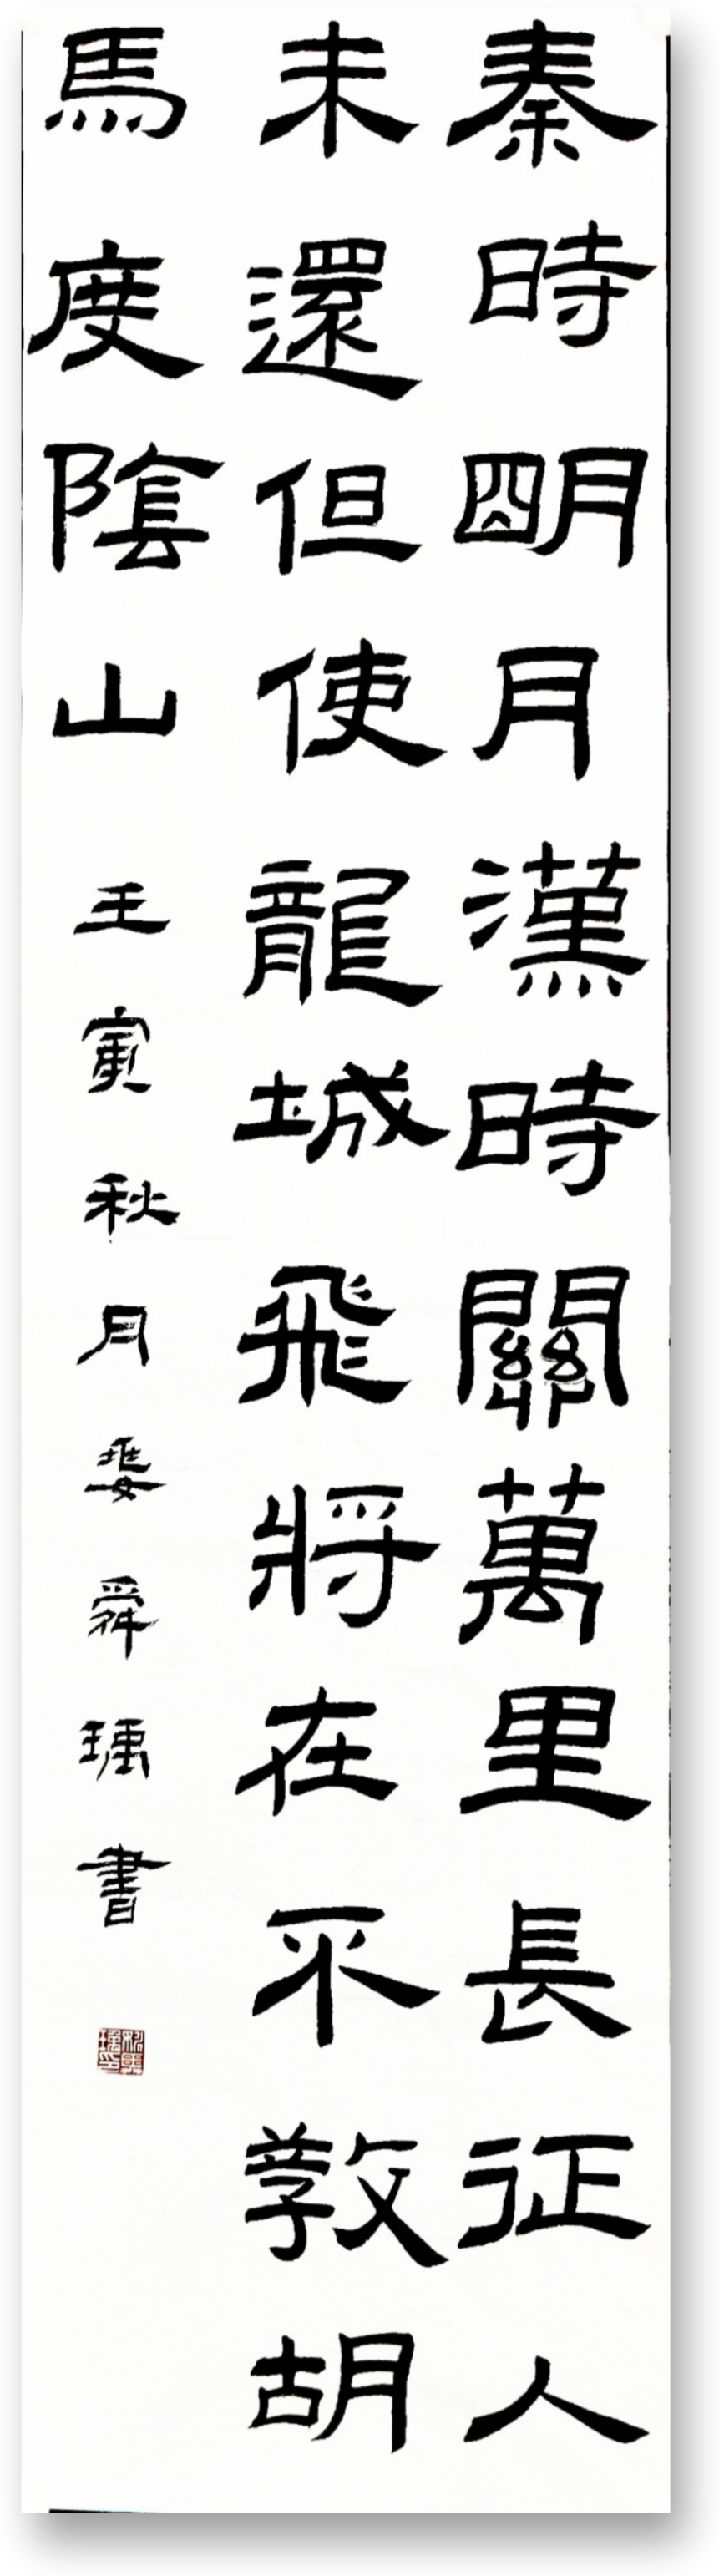 秦時明月漢時關萬里長征人
未還但使龍城飛將在不教胡
馬度陰山
壬寅秋月舜書